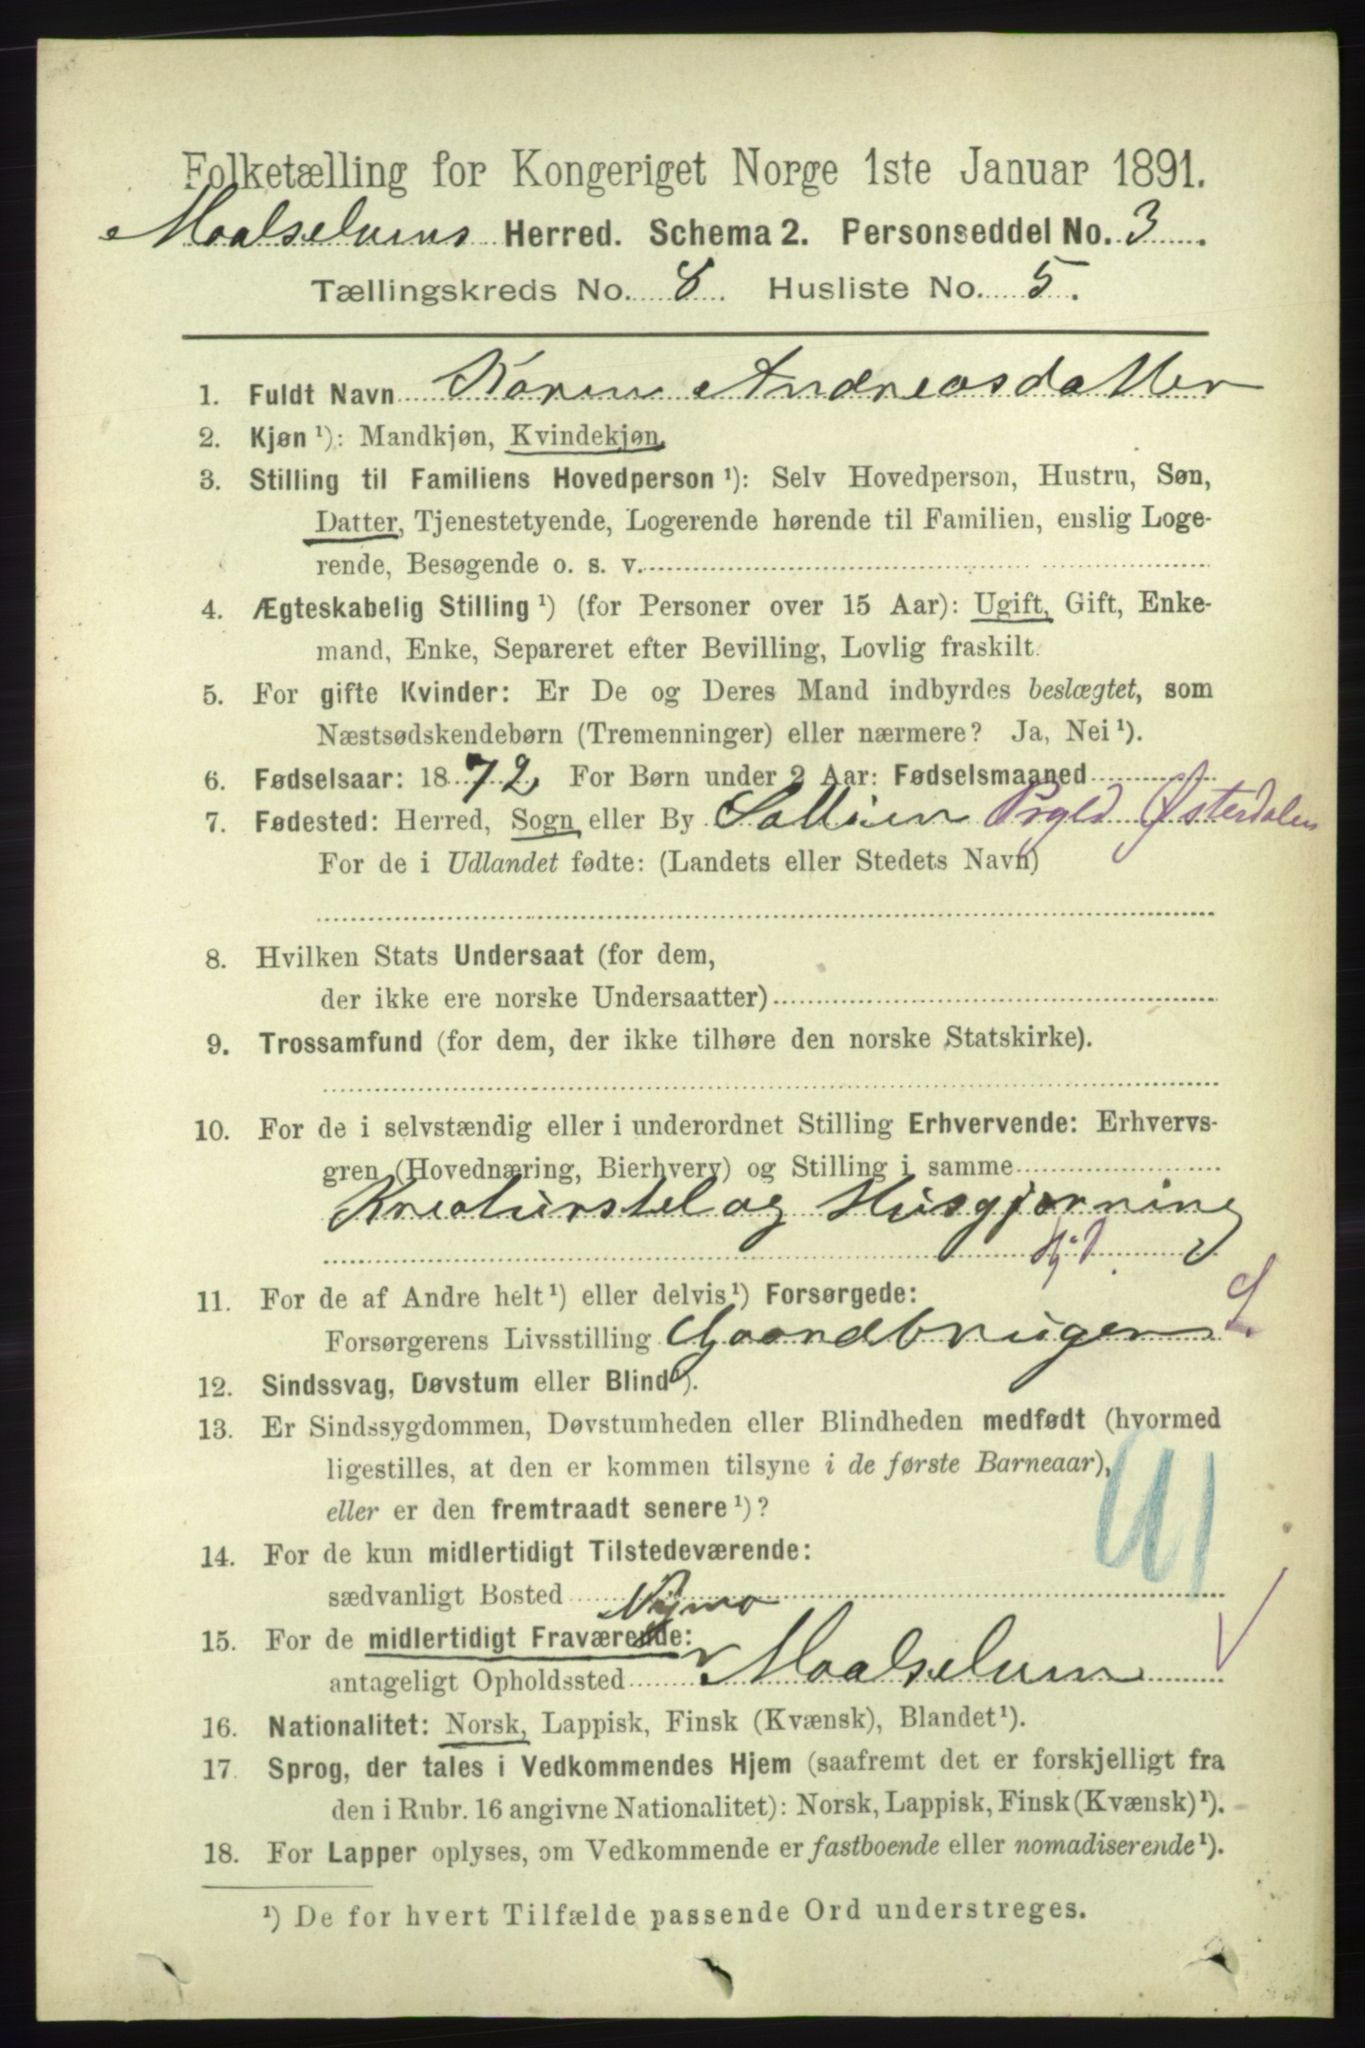 Folketælling for Kongeriget Norge 1ste Januar 1891.
Maalselvens Herred. Schema 2. Personseddel No. 3
Tællingskreds No. 8. Husliste No. 5.
1. Fuldt Navn Karen Andreasdatter
2. Kjøn ¹): Mandkjøn, Kvindekjøn.
3. Stilling til Familiens Hovedperson ¹): Selv Hovedperson, Hustru, Søn,
Datter, Tjenestetyende, Logerende hørende til Familien, enslig Loge-
rende, Besøgende o. s. v.
4. Ægteskabelig Stilling ¹) (for Personer over 15 Aar): Ugift, Gift, Enke-
mand, Enke, Separeret efter Bevilling, Lovlig fraskilt.
5. For gifte Kvinder: Er De og Deres Mand indbyrdes beslægtet, som
Næstsødskendebørn (Tremenninger) eller nærmere? Ja, Nei ¹).
6. Fødselsaar: 1872, For Børn under 2 Aar: Fødselsmaaned
7. Fødested: Herred, Sogn eller By Sollien Prgld Østerdalen
For de i Udlandet fødte: (Landets eller Stedets Navn)
8. Hvilken Stats Undersaat (for dem,
der ikke ere norske Undersaatter)
9. Trossamfund (for dem, der ikke tilhøre den norske Statskirke).
10. For de i selvstændig eller i underordnet Stilling Erhvervende: Erhvervs-
gren (Hovednæring, Bierhverv) og Stilling i samme
Kreaturstel og Husgjerning
11. For de af Andre helt ¹) eller delvis ¹) Forsørgede:
Forsørgerens Livsstilling Gaardbruger
12. Sindssvag, Døvstum eller Blind ¹).
13. Er Sindssygdommen, Døvstumheden eller Blindheden medfødt (hvormed
ligestilles, at den er kommen tilsyne i de første Barneaar),
eller er den fremtraadt senere ¹)?
14. For de kun midlertidigt Tilstedeværende:
sædvanligt Bosted
Nymo
15. For de midlertidigt Fraværende:
antageligt Opholdssted Maalselven
16. Nationalitet: Norsk, Lappisk, Finsk (Kvænsk), Blandet ¹).
17. Sprog, der tales i Vedkommendes Hjem (saafremt det er forskjelligt fra
den i Rubr. 16 angivne Nationalitet): Norsk, Lappisk, Finsk (Kvænsk) ¹).
18. For Lapper oplyses, om Vedkommende er fastboende eller nomadiserende ¹).
¹) De for hvert Tilfælde passende Ord understreges.